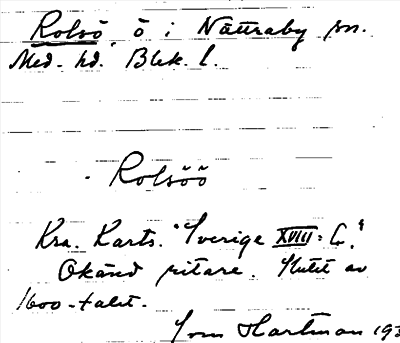 Rolsö, ö i Nättraby sn.
Med. hd. Blek. l.
Rolsöö
Kra. Karts. "Sverige XVIII: G."
Okänd ritare. Slutet av
1600-talet.
Hartman 193